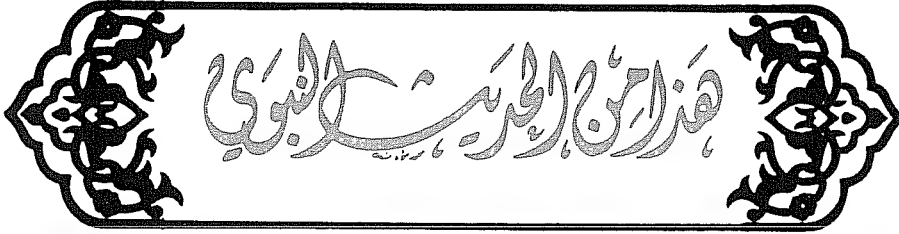 هَذَا مِنَ الْحَدِيثِ النَّبَوِيّ